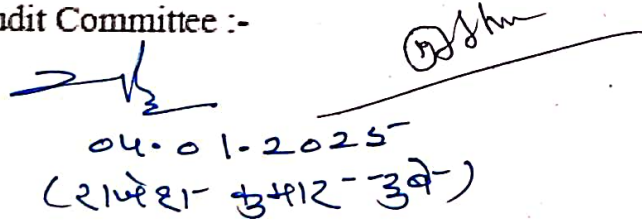 udit Committee :-
04.01.2025
(राजेश कुमार दुबे)